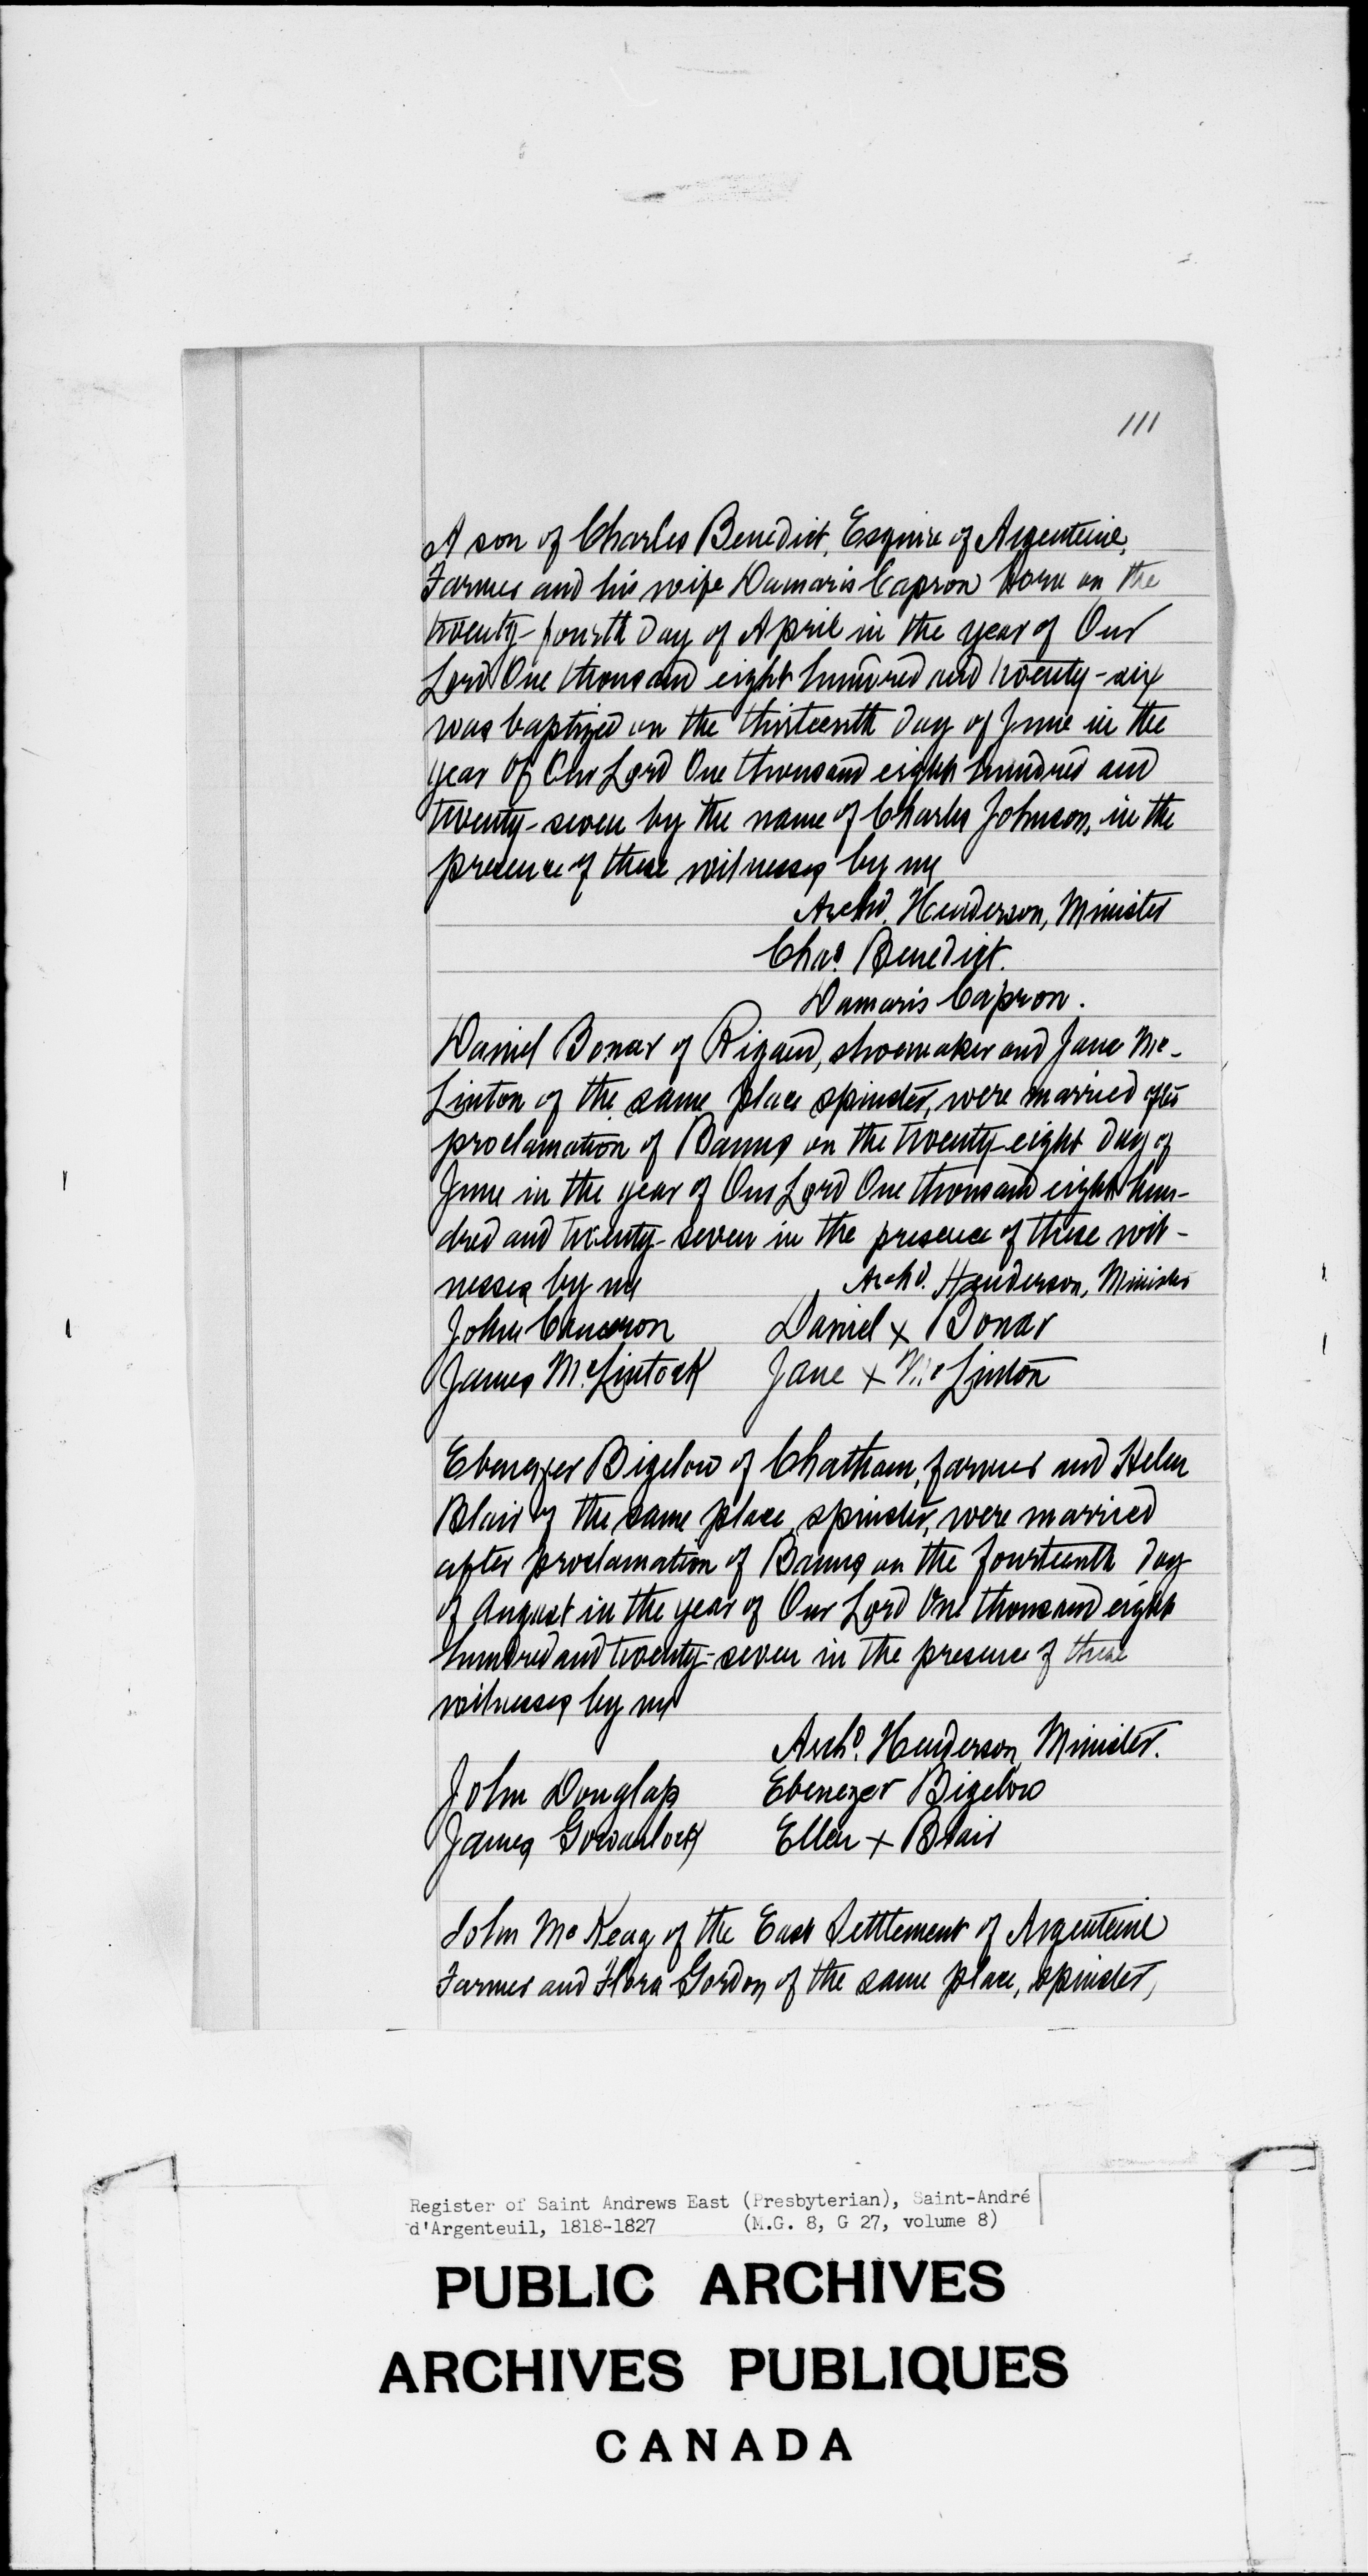 111
A son of Charles Benedict, Esquire of Argenteuil,
Farmer and his wife Damaris Capron born on the
twenty-fourth day of April in the year of Our
Lord One thousand eight hundred and twenty-six
was baptized on the thirteenth day of June in the
year of Our Lord One thousand eight hundred and
twenty-seven by the name of Charles Johnson, in the
presence of these witnesses by me
Archd. Henderson, Minister
Chas. Benedict.
Damaris Capron.
Daniel Bonar of Rigaud, shoemaker and Jane Mc-
Linton of the same place spinster, were married after
proclamation of Banns on the twenty-eight day of
June in the year of Our Lord One thousand eight hun-
dred and twenty-seven in the presence of these wit-
nesses by me Archd. Henderson, Minister
John Cameron Daniel x Bonar
James McLintock Jane x McLinton
Ebenezer Bigelow of Chatham, farmer and Helen
Blair of the same place, spinster, were married
after proclamation of Banns on the fourteenth day
of August in the year of Our Lord One thousand eight
hundred and twenty-seven in the presence of these
witnesses by me
Archd. Henderson, Minister.
John Douglass Ebenezer Bigelow
James Gowanlock Ellen x Blair
John McKeag of the East Settlement of Argenteuil
Farmer and Flora Gordon of the same place, spinster,
Register of Saint Andrews East (Presbyterian), Saint-André
d'Argenteuil, 1818-1827 (M.G. 8, G 27, volume 8)
PUBLIC ARCHIVES
ARCHIVES PUBLIQUES
CANADA